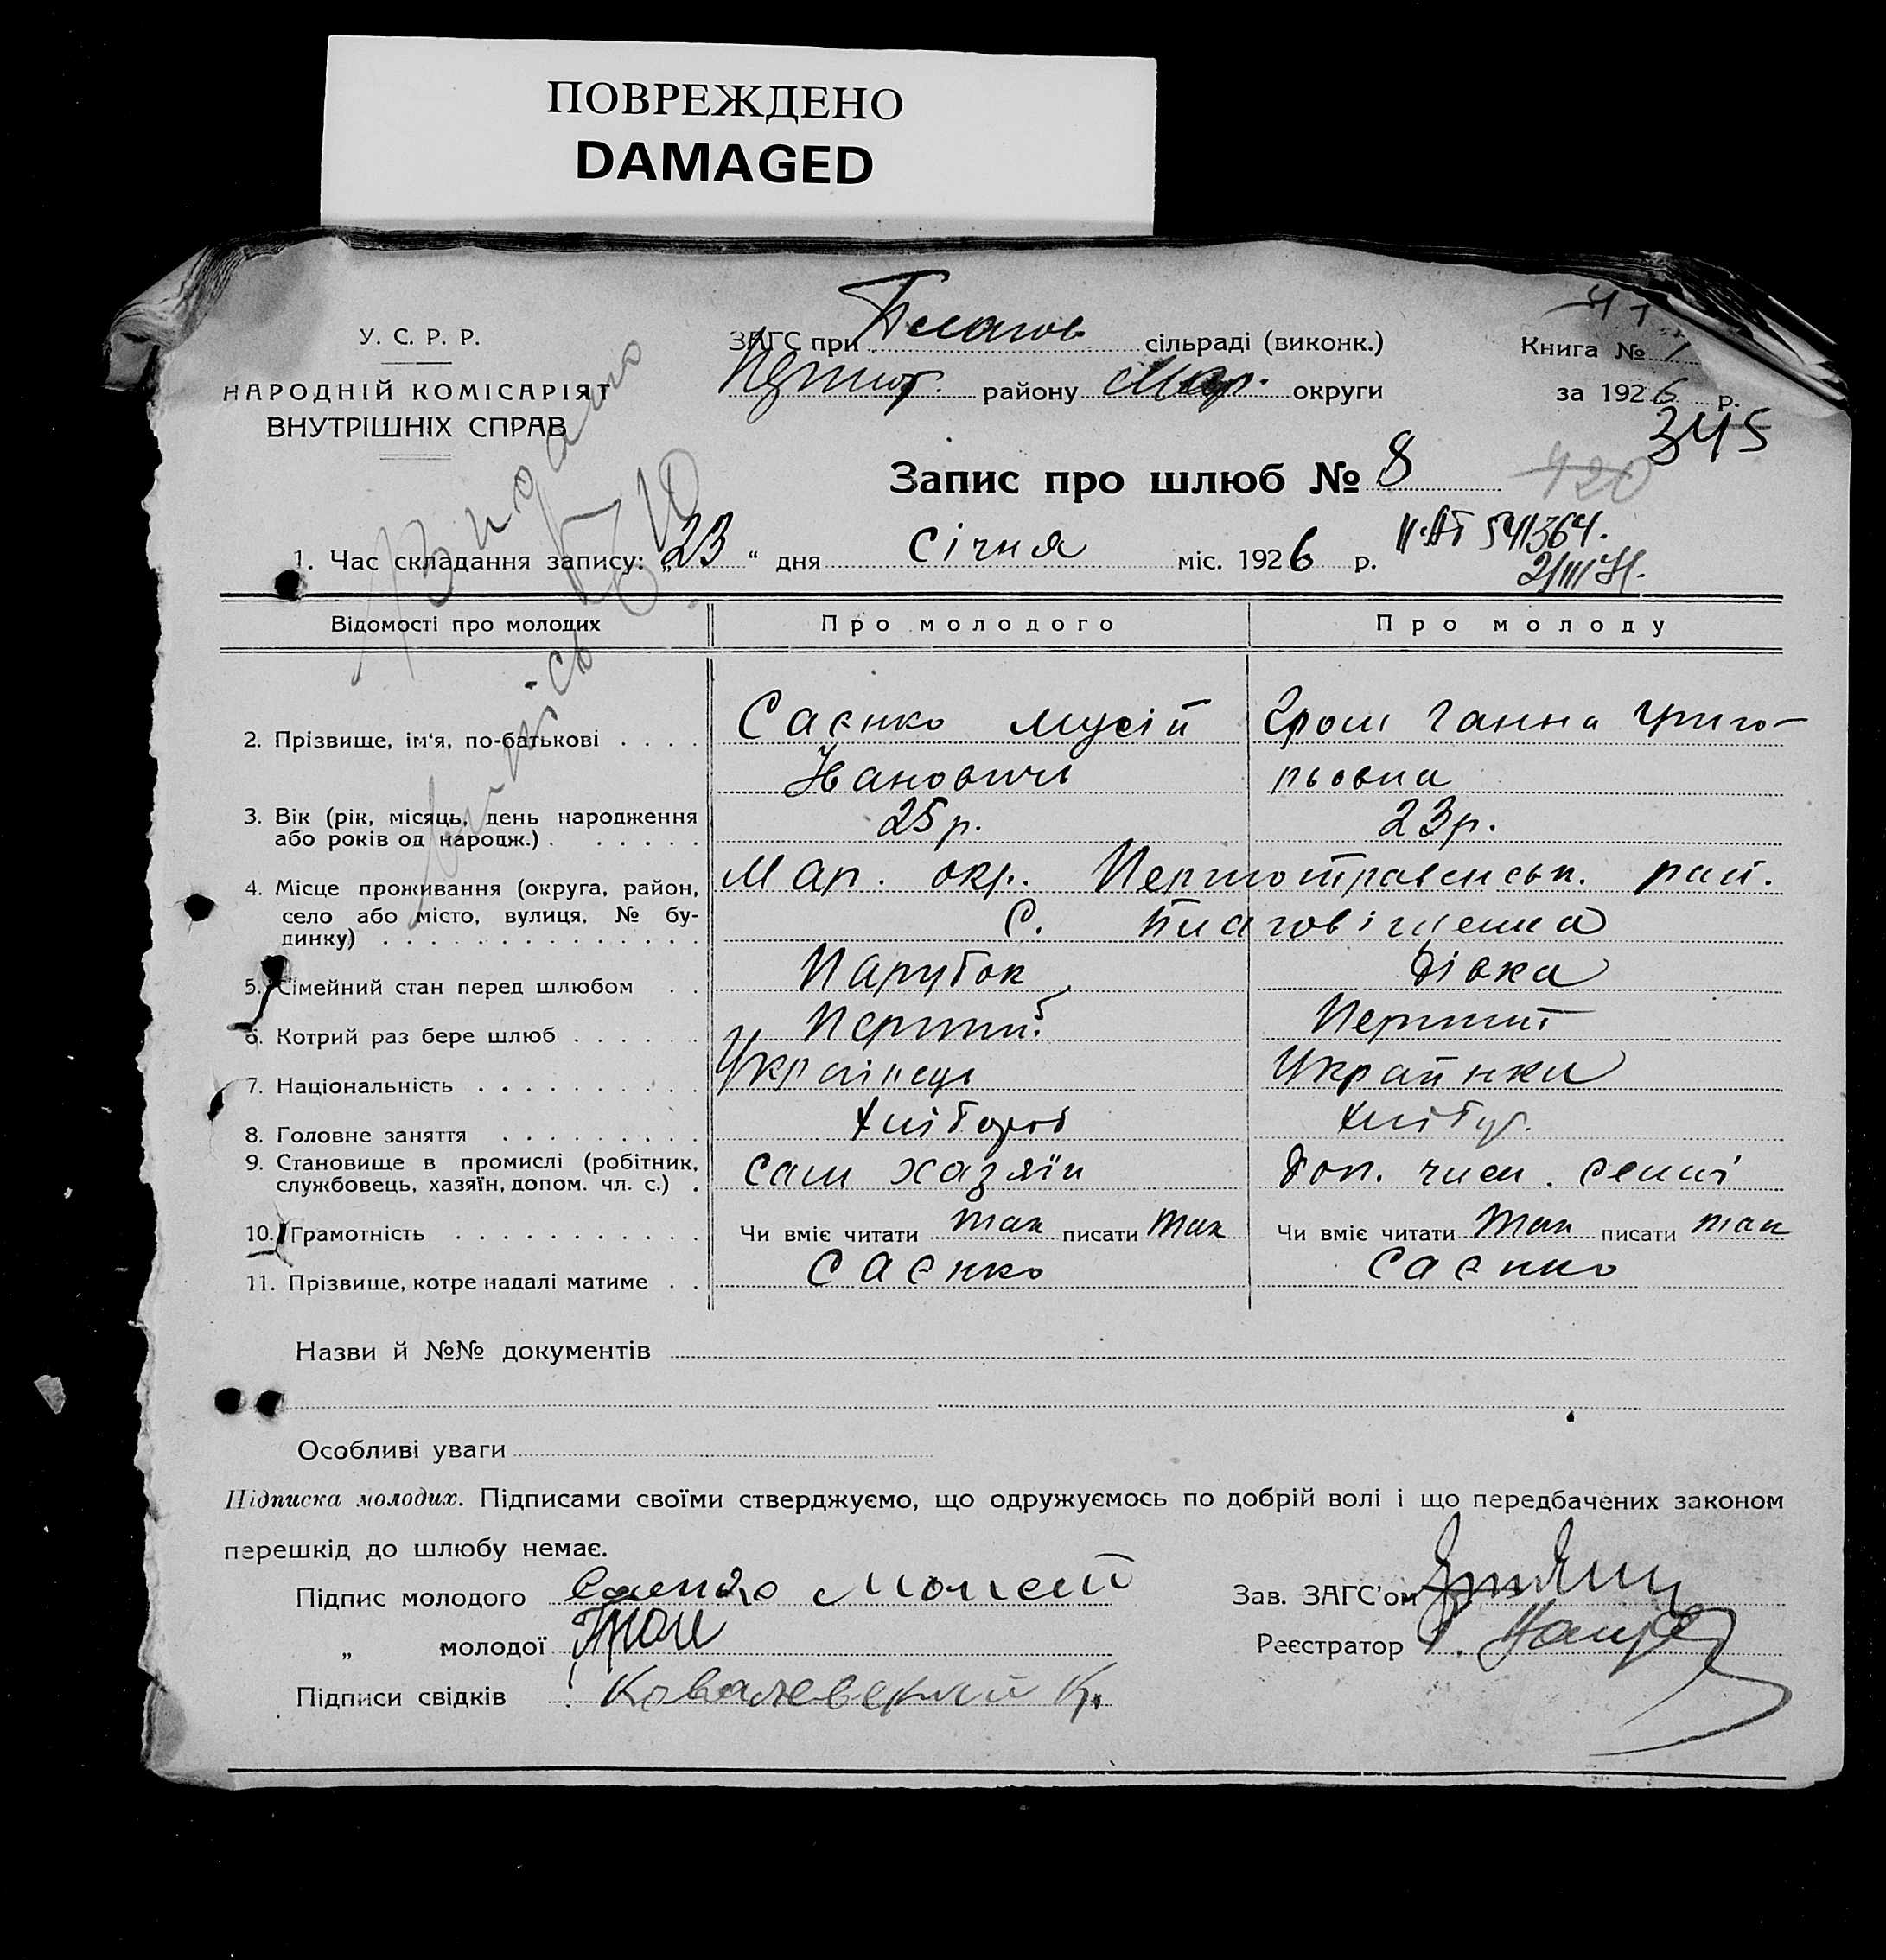 ПОВРЕЖДЕНО
DAMAGED
У. С. Р. Р.
НАРОДНІЙ КОМІСАРІЯТ
ВНУТРІШНІХ СПРАВ
ЗАГС при Благов сільраді (виконк.)
району Мар. округи
Книга № 1
за 1926 р.
345
420
Запис про шлюб № 8
1. Час складання запису: „23“ дня січня міс. 1926 р.
541364.
Відомості про молодих Про молодого Про молоду
2. Прізвище, ім'я, по-батькові . . . . Саєнко Мусій Гром Ганна Григо-
Іванович рьовна
3. Вік (рік, місяць, день народження
або років од народж.) . . . . . . 25 р. 23 р.
4. Місце проживання (округа, район, Мар. окр. Першотравенськ. рай.
село або місто, вулиця, № бу- С. Благовіщенка
динку) . . . . . . . . . . . . . .
5. Сімейний стан перед шлюбом . . Парубок Дівка
6. Котрий раз бере шлюб . . . . . . Перший Перший
7. Національність . . . . . . . . . . Українець Українка
8. Головне заняття . . . . . . . . . Хлібороб Хлібор.
9. Становище в промислі (робітник,
службовець, хазяїн, допом. чл. с.) . сам хазяїн Доп. член. семії
10. Грамотність . . . . . . . . . . . Чи вміє читати так писати так Чи вміє читати так писати так
11. Прізвище, котре надалі матиме . . Саєнко Саєнко
Назви й №№ документів
Особливі уваги
Підписка молодих. Підписами своїми стверджуємо, що одружуємось по добрій волі і що передбачених законом
перешкід до шлюбу немає.
Підпис молодого Саенко Моисей Зав. ЗАГС'ом
„ молодої Гром Реєстратор
Підписи свідків Ковалевский К.